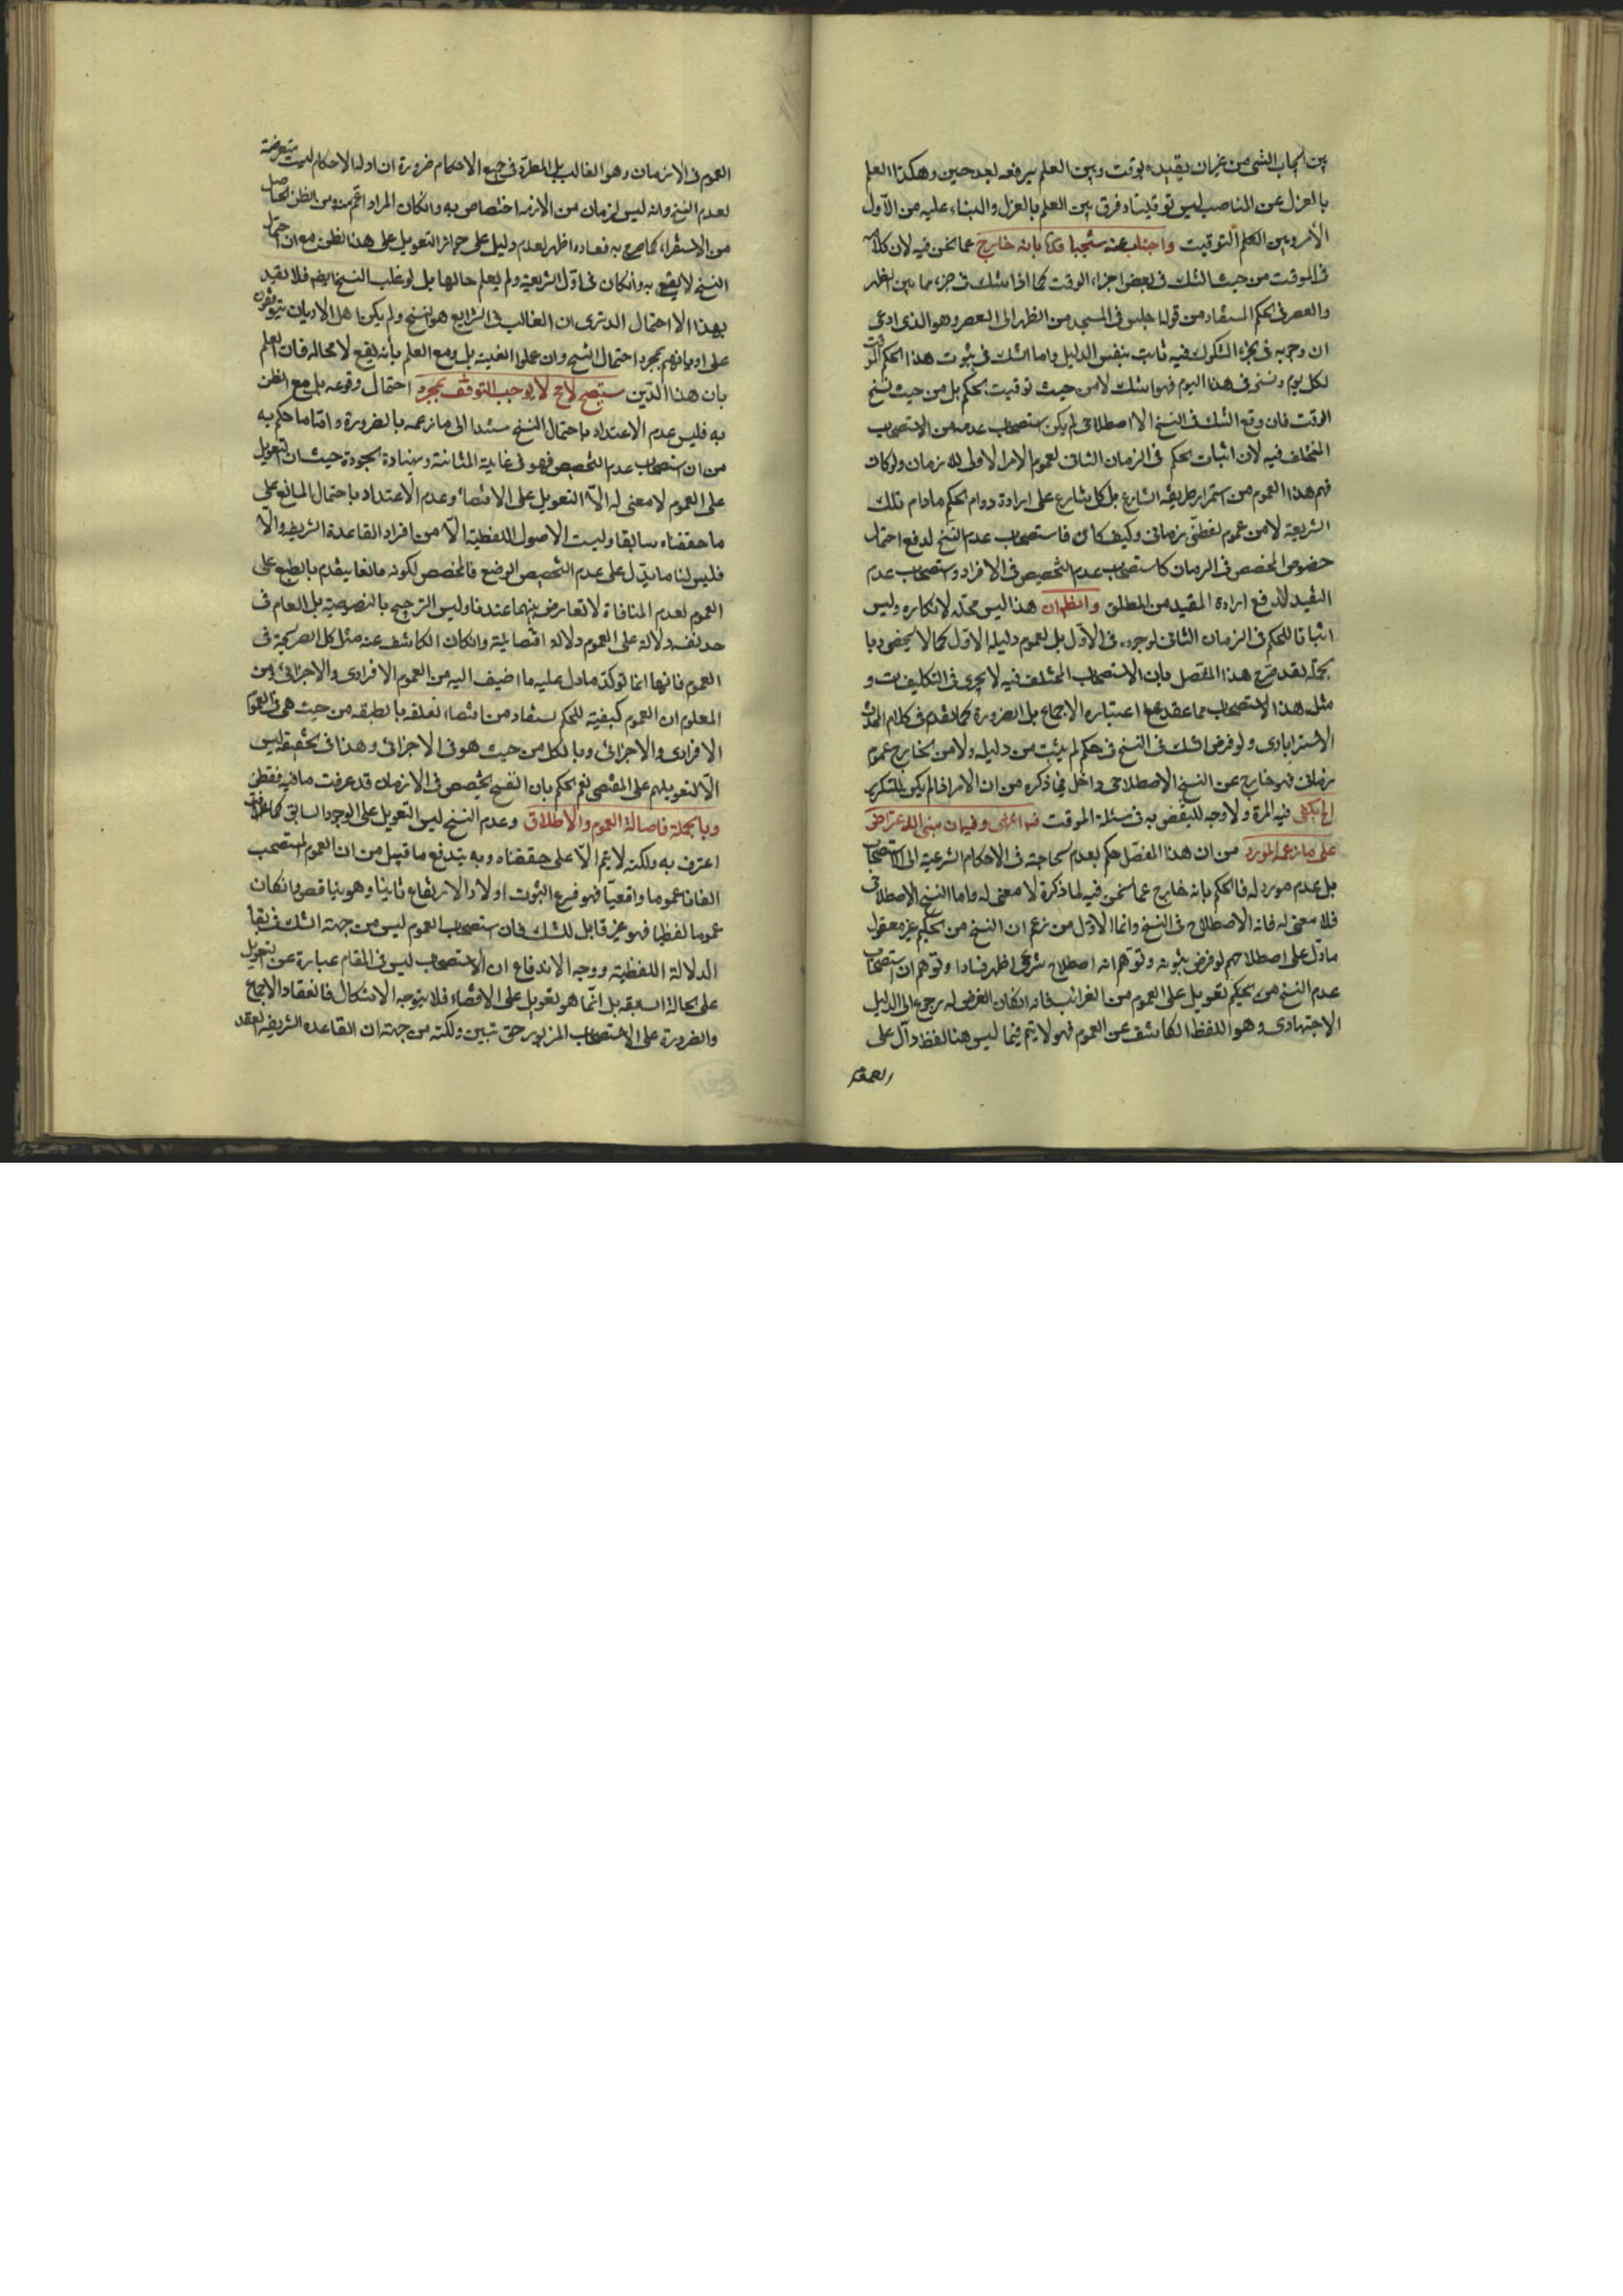 بين ايجاب الشئ من غير ان يقيده بوقت وبين العلم برفعه بعد حين وهكذا العلم
بالعزل عن المناصب ليس توقيتا وفرق بين العلم بالعزل والبناء عليه من الأول
الأمر وبين الحكم التوقيت واجاب عنه شيخنا قدّه بانه خارج عما نحن فيه لان كلامه
فى الموقت من حيث الشك فى بعض اجزاء الوقت كما اذا شك فى جزء مما بين الظهر
والعصر فى الحكم المستفاد من قوله اجلس فى المسجد من الظهر الى العصر وهو الذى ادعى
ان وجوبه فى الجزء المشكوك فيه ثابت بنفس الدليل واما الشك فى ثبوت هذا الحكم الموقت
لكل يوم او نسخ فى هذا اليوم فهو شك لا من حيث توقيت الحكم بل من حيث نسخ
الوقت فان وقع الشك فى النسخ الاصطلاحى لم يكن استصحاب عدمه من الاستصحاب
المختلف فيه لان اثبات الحكم فى الزمان الثانى لعموم الامر الاول للازمان ولو كان
فهم هذا العموم من استمرار طريقة الشارع بل كل شارع على ارادة دوام الحكم مادام تلك
الشريعة لا من عموم لفظى زمانى وكيف كان فاستصحاب عدم النسخ لدفع احتمال
حصول المخصص فى الزمان كاستصحاب عدم التخصيص فى الافراد واستصحاب عدم
التقييد لدفع ارادة المقيد من المطلق والظ ان هذا ليس محله لانكاره وليس
اثباتا للحكم فى الزمان الثانى لوجوده فى الاول بل لعموم دليله الاول كما لا يخفى وبا
لجملة فقد صرح هذا المفصل بان الاستصحاب المختلف فيه لا يجرى فى التكليفيات و
مثل هذا الاستصحاب مما عقد على اعتباره الاجماع بل الضرورة كما تقدم فى كلام المحدث
الاسترابادى ولو فرض الشك فى النسخ فى حكم لم يثبت من دليله ولا من الخارج عموم
زمانى فهو خارج عن النسخ الاصطلاحى داخل فيما ذكره من ان الامر اذا لم يكن للتكرار
الخ يكفى فيه المرة ولا وجه للنقض به فى مسئلة الموقت وفيه ان مبنى الاعتراض
على ما زعمه المورد من ان هذا المفصل حكم بعدم الحاجة فى الاحكام الشرعية الى الاستصحاب
بل عدم مورد له فالحكم بانه خارج عما نحن فيه لما ذكره لا معنى له واما النسخ الاصطلاحى
فلا معنى له فانه لا اصطلاح فى النسخ وانما الاول من زعم ان النسخ من الحكيم غير معقول
مادل على اصطلاحهم لو فرض ثبوته وتوهم انه اصطلاح شرعى اظهر فسادا وتوهم ان استصحاب
عدم النسخ من الحكيم تعويل على العموم من الغرائب فانه ان كان الغرض له رجوع الى الدليل
الاجتهادى وهو اللفظ الكاشف عن العموم فهو لا يتم فيما ليس هنا لفظ دال على
العموم
العموم فى الازمان وهو الغالب بل المطرد فى جميع الاحكام ضرورة ان ادلة الاحكام ليست متعرضة
لعدم النسخ وانه ليس لزمان من الازمنة اختصاص به وان كان المراد اعم منه ومن الظن الحاصل
من الاستقراء كما صرح به ففساده اظهر لعدم دليل على جواز التعويل على هذا الظن مع ان احتمال
النسخ لا يقع به وان كان فى اول الشريعة ولم يعلم حالها بل لو غلب النسخ ايضا فلا نقيد
بهذا الاحتمال الا ترى ان الغالب فى الشرايع هو النسخ ولم يكن اهل الاديان يتوقفون
على اديانهم بمجرد احتمال النسخ وان علموا الغلبة بل ومع العلم بانه يقع لا محالة فان العلم
بان هذا الدين سينسخ لا يوجب التوقف بمجرد احتمال وقوعه بل مع الظن
به فليس عدم الاعتداد باحتمال النسخ مستندا الى ما زعمه بالضرورة واما ما حكم به
من ان استصحاب عدم التخصيص فهو فى غاية المتانة ونهاية الجودة حيث ان التعويل
على العموم لا معنى له الا التعويل على الاقتضاء وعدم الاعتداد باحتمال المانع على
ما حققناه سابقا وليست الاصول اللفظية الا من افراد القاعدة الشريفة والا
فليس لنا ما يدل على عدم التخصيص الوضع فالمخصص لكونه مانعا يقدم بالطبع على
العموم لعدم المنافاة لا تعارض بينهما عندنا وليس الترجيح بالنصوصية بل العام فى
حد نفسه دلالة على العموم دلالة اقتضائية وان كان الكاشف عنه مثل كل الصريحة فى
العموم فانها انما تؤكد ما دل عليه ما اضيف اليه من العموم الافرادى والاجزائى ومن
المعلوم ان العموم كيفية للحكم يستفاد من اقتضاء تعلقه بالطبيعة من حيث هى فى العموم
الافرادى والاجزائى وبالكل من حيث هو فى الاجزائى وهذا فى الحقيقة ليس
الا لتعويلهم على المقتضى نعم الحكم بان النسخ تخصيص فى الازمان قد عرفت ما فيه فتفطن
وبالجملة فاصالة العموم والاطلاق وعدم النسخ ليس التعويل على الوجود السابق كما عرفت
اعترف به ولكنه لا يتم الا على ما حققناه وبه يندفع ما قيل من ان العموم المستصحب
ان كان عموما واقعيا فهو فرع الثبوت اولا والارتفاع ثانيا وهو يناقض وان كان
عموما لفظيا فهو غير قابل للشك فان استصحاب العموم ليس من جهة الشك فى بقاء
الدلالة اللفظية ووجه الاندفاع ان الاستصحاب ليس فى المقام عبارة عن التعويل
على الحالة السابقة بل انما هو تعويل على الاقتضاء فلا يتوجه الاشكال فانعقاد الاجماع
والضرورة على الاستصحاب المزبور حق تبين ولكنه من جهة ان القاعدة الشريفة انعقد